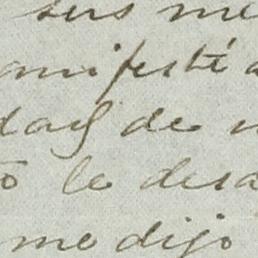 sus me
anifesté a
dad de
to le desa
me dijo